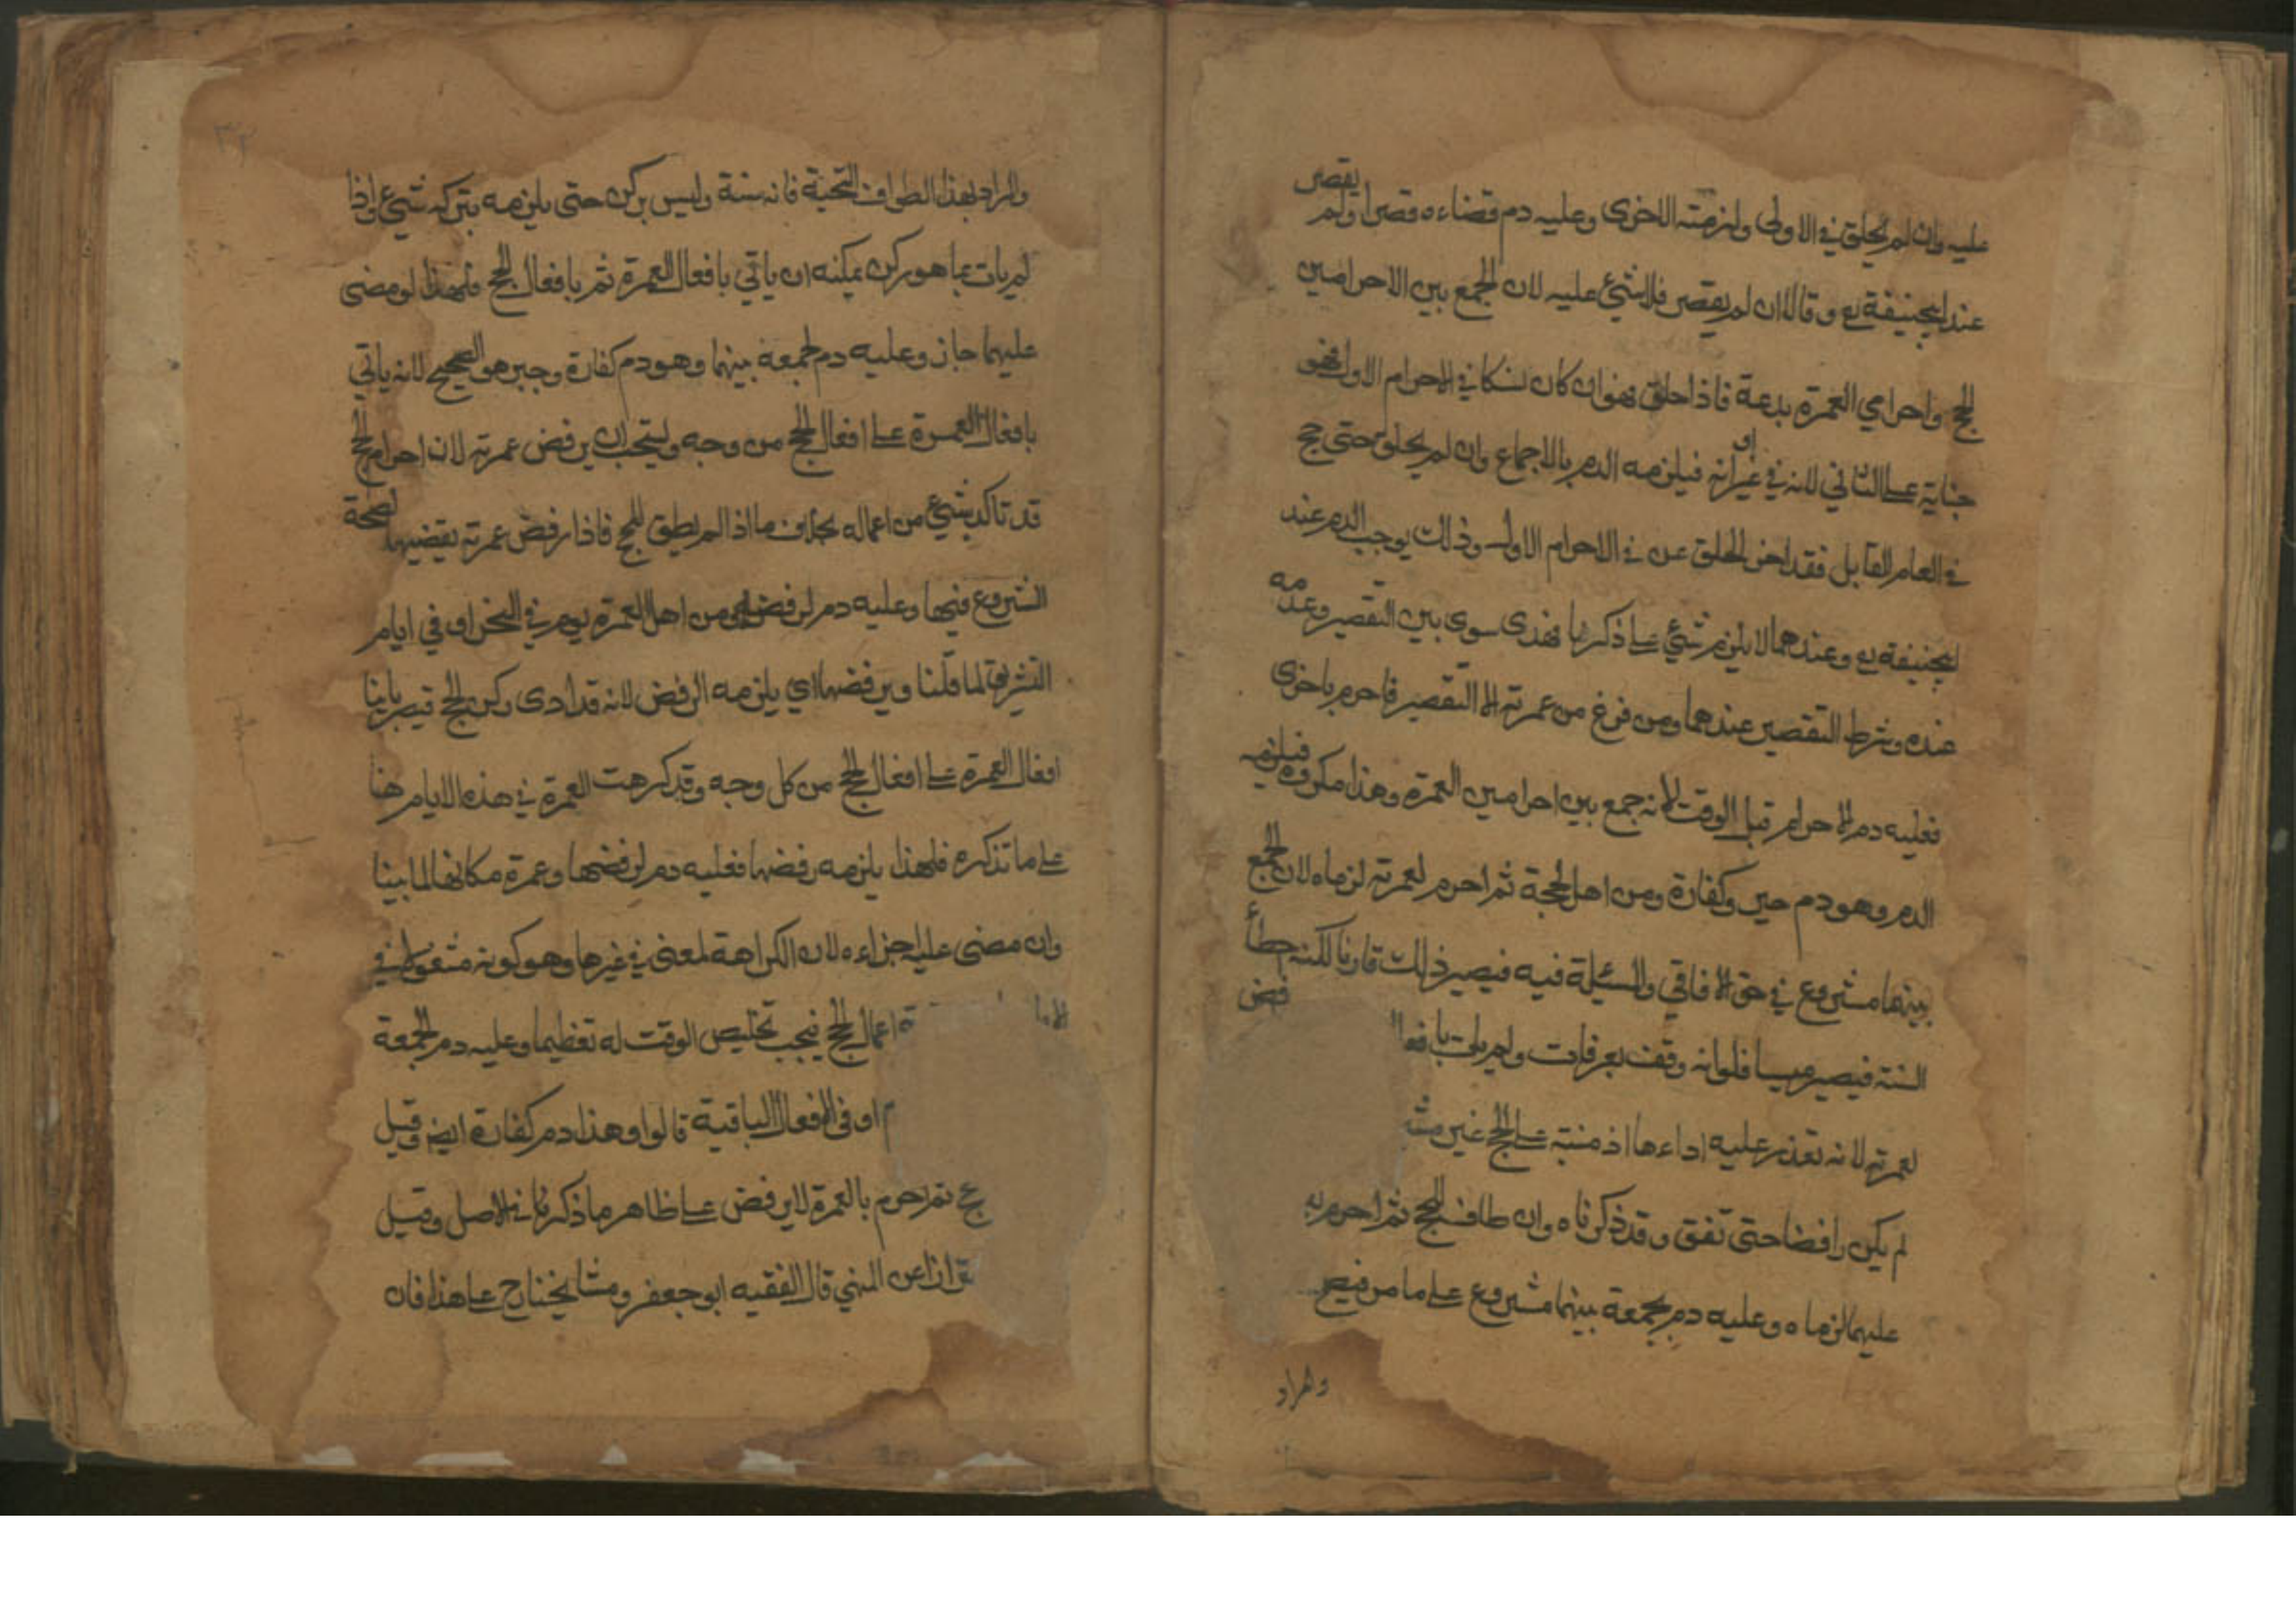 عليه وان لم يحلق في الاولى ولزمته الاخرى وعليه دم قضاءه قصر اولم يقصر
عند ابيحنيفة رح وقالا ان لم يقصر فلا شئ عليه لان الجمع بين الاحرامين
الحج واحرامي العمرة بدعة فاذا حلق فهو ان كان نسكا في الاحرام الاول فهو
جناية على الثاني لانه في غير اوانه فيلزمه الدم بالاجماع وان لم يحلق حتى حج
في العام القابل فقد اخر الحلق عن في الاحرام الاول وذلك يوجب الدم عند
ابيحنيفة رح وعندهما لا يلزم شئ على ذكرنا فهذى سوى بين التقصير وعدمه
عنده وشرط التقصير عندهما ومن فرغ من عمرته الا التقصير فاحرم باخرى
فعليه دم الاحرام قبل الوقت لانه جمع بين احرامين العمرة وهذا مكروه فيلزمه
الدم وهو دم جبر وكفارة ومن اهل بحجة ثم احرم لعمرته لزماه لان الجمع
بينهما مشروع في حق الافاقي والمسئلة فيه فيصير ذلك قارنا لكنه خطأ
السنة فيصير مسيا فلو انه وقف بعرفات ولم يات بافعال فض
لعمرته لانه تعذر عليه اداءها اذ منبته على الحج غير مش
لم يكن رافضا حتى تقف وقد ذكرناه وان طاف للحج ثم احرم له
عليهما لزماه وعليه دم بجمعة بينهما مشروع على ما مر فيصح
والمراد
والمراد بهذا الطواف التحية فانه سنة وليس بركن حتى يلزمه بتركه شئ واذا
لم يات بما هو ركن يمكنه ان ياتي بافعال العمرة ثم بافعال الحج فلهذا لو مضى
عليهما جاز وعليه دم لجمعه بينهما وهو دم كفارة وجبر هو الصحيح لانه ياتي
بافعال العمرة على افعال الحج من وجه ويستحب ان يرفض عمرته لان احرام الحج
قد تاكد بشئ من اعماله بخلاف ما اذا لم يطق للحج فاذا رفض عمرته يقضيها لصحة
الشروع فيها وعليه دم لرفضها ومن اهل العمرة يوم في النحر او في ايام
التشريق لما قلنا ويرفضها اي يلزمه الرفض لانه قد ادى ركن الحج فيصير بانيا
افعال العمرة على افعال الحج من كل وجه وقد كرهت العمرة في هذه الايام هنا
على ما تذكره فلهذا يلزمه رفضها فعليه دم لرفضها وعمرة مكانها لما بينا
وان مضى عليها اجزاءه لان الكراهة لمعنى في غيرها وهو كونه مشغولا في
اعمال الحج فيجب تخليص الوقت له تعظيما وعليه دم لجمعة
او في الافعال الباقية قالوا وهذا دم كفارة ايض وقيل
حج ثم احرم بالعمرة لا يرفض على ظاهر ما ذكرنا في الاصل وقيل
ازا عن النهي قال الفقيه ابو جعفر ومشايخنا رح على هذا فان